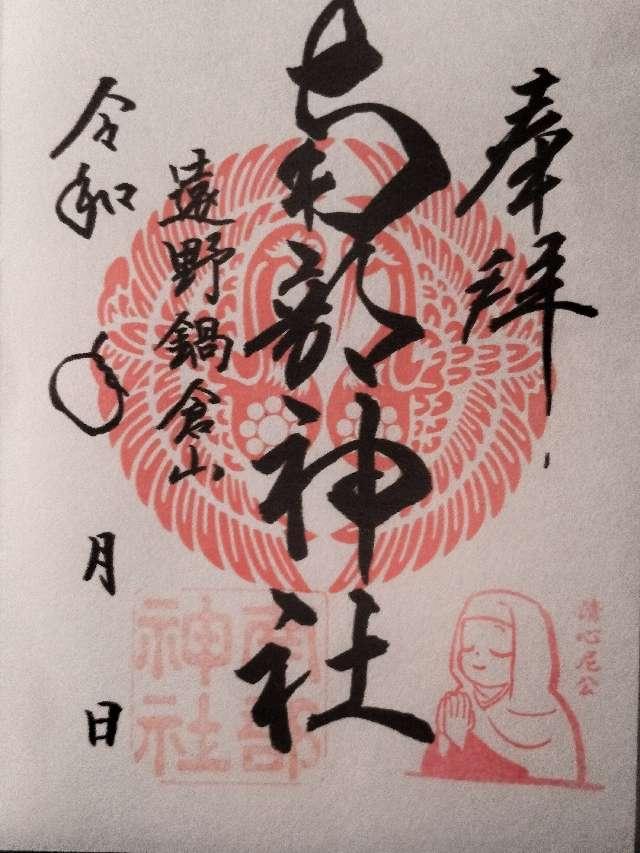 奉拝
南部神社
遠野鍋倉山
令和〇 月 日
清心尼公
南部
神社